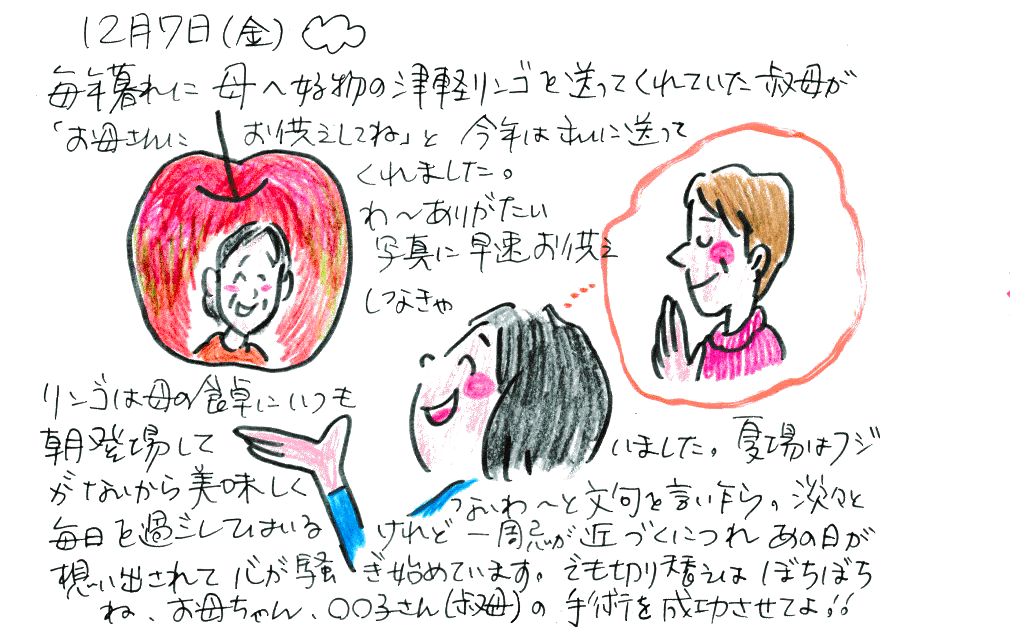 12月7日(金)
毎年暮れに母へ好物の津軽リンゴを送ってくれていた叔母が
「お母さんに お供えしてね」と 今年は されに送って
くれました。
わ〜ありがたい
写真に早速お供え
しなきゃ
リンゴは母の食卓にいつも
朝登場して いました。夏場はフジ
がないから美味しく ないわ〜と文句を言い乍ら。淡々と
毎日を過ごしてはいる けれど 一周忌が近づくにつれ あの日が
想い出されて 心が騒ぎ始めています。でも切り替えは ぼちぼち
ね、お母ちゃん、〇〇子さん(叔母)の 手術を成功させてよ!!